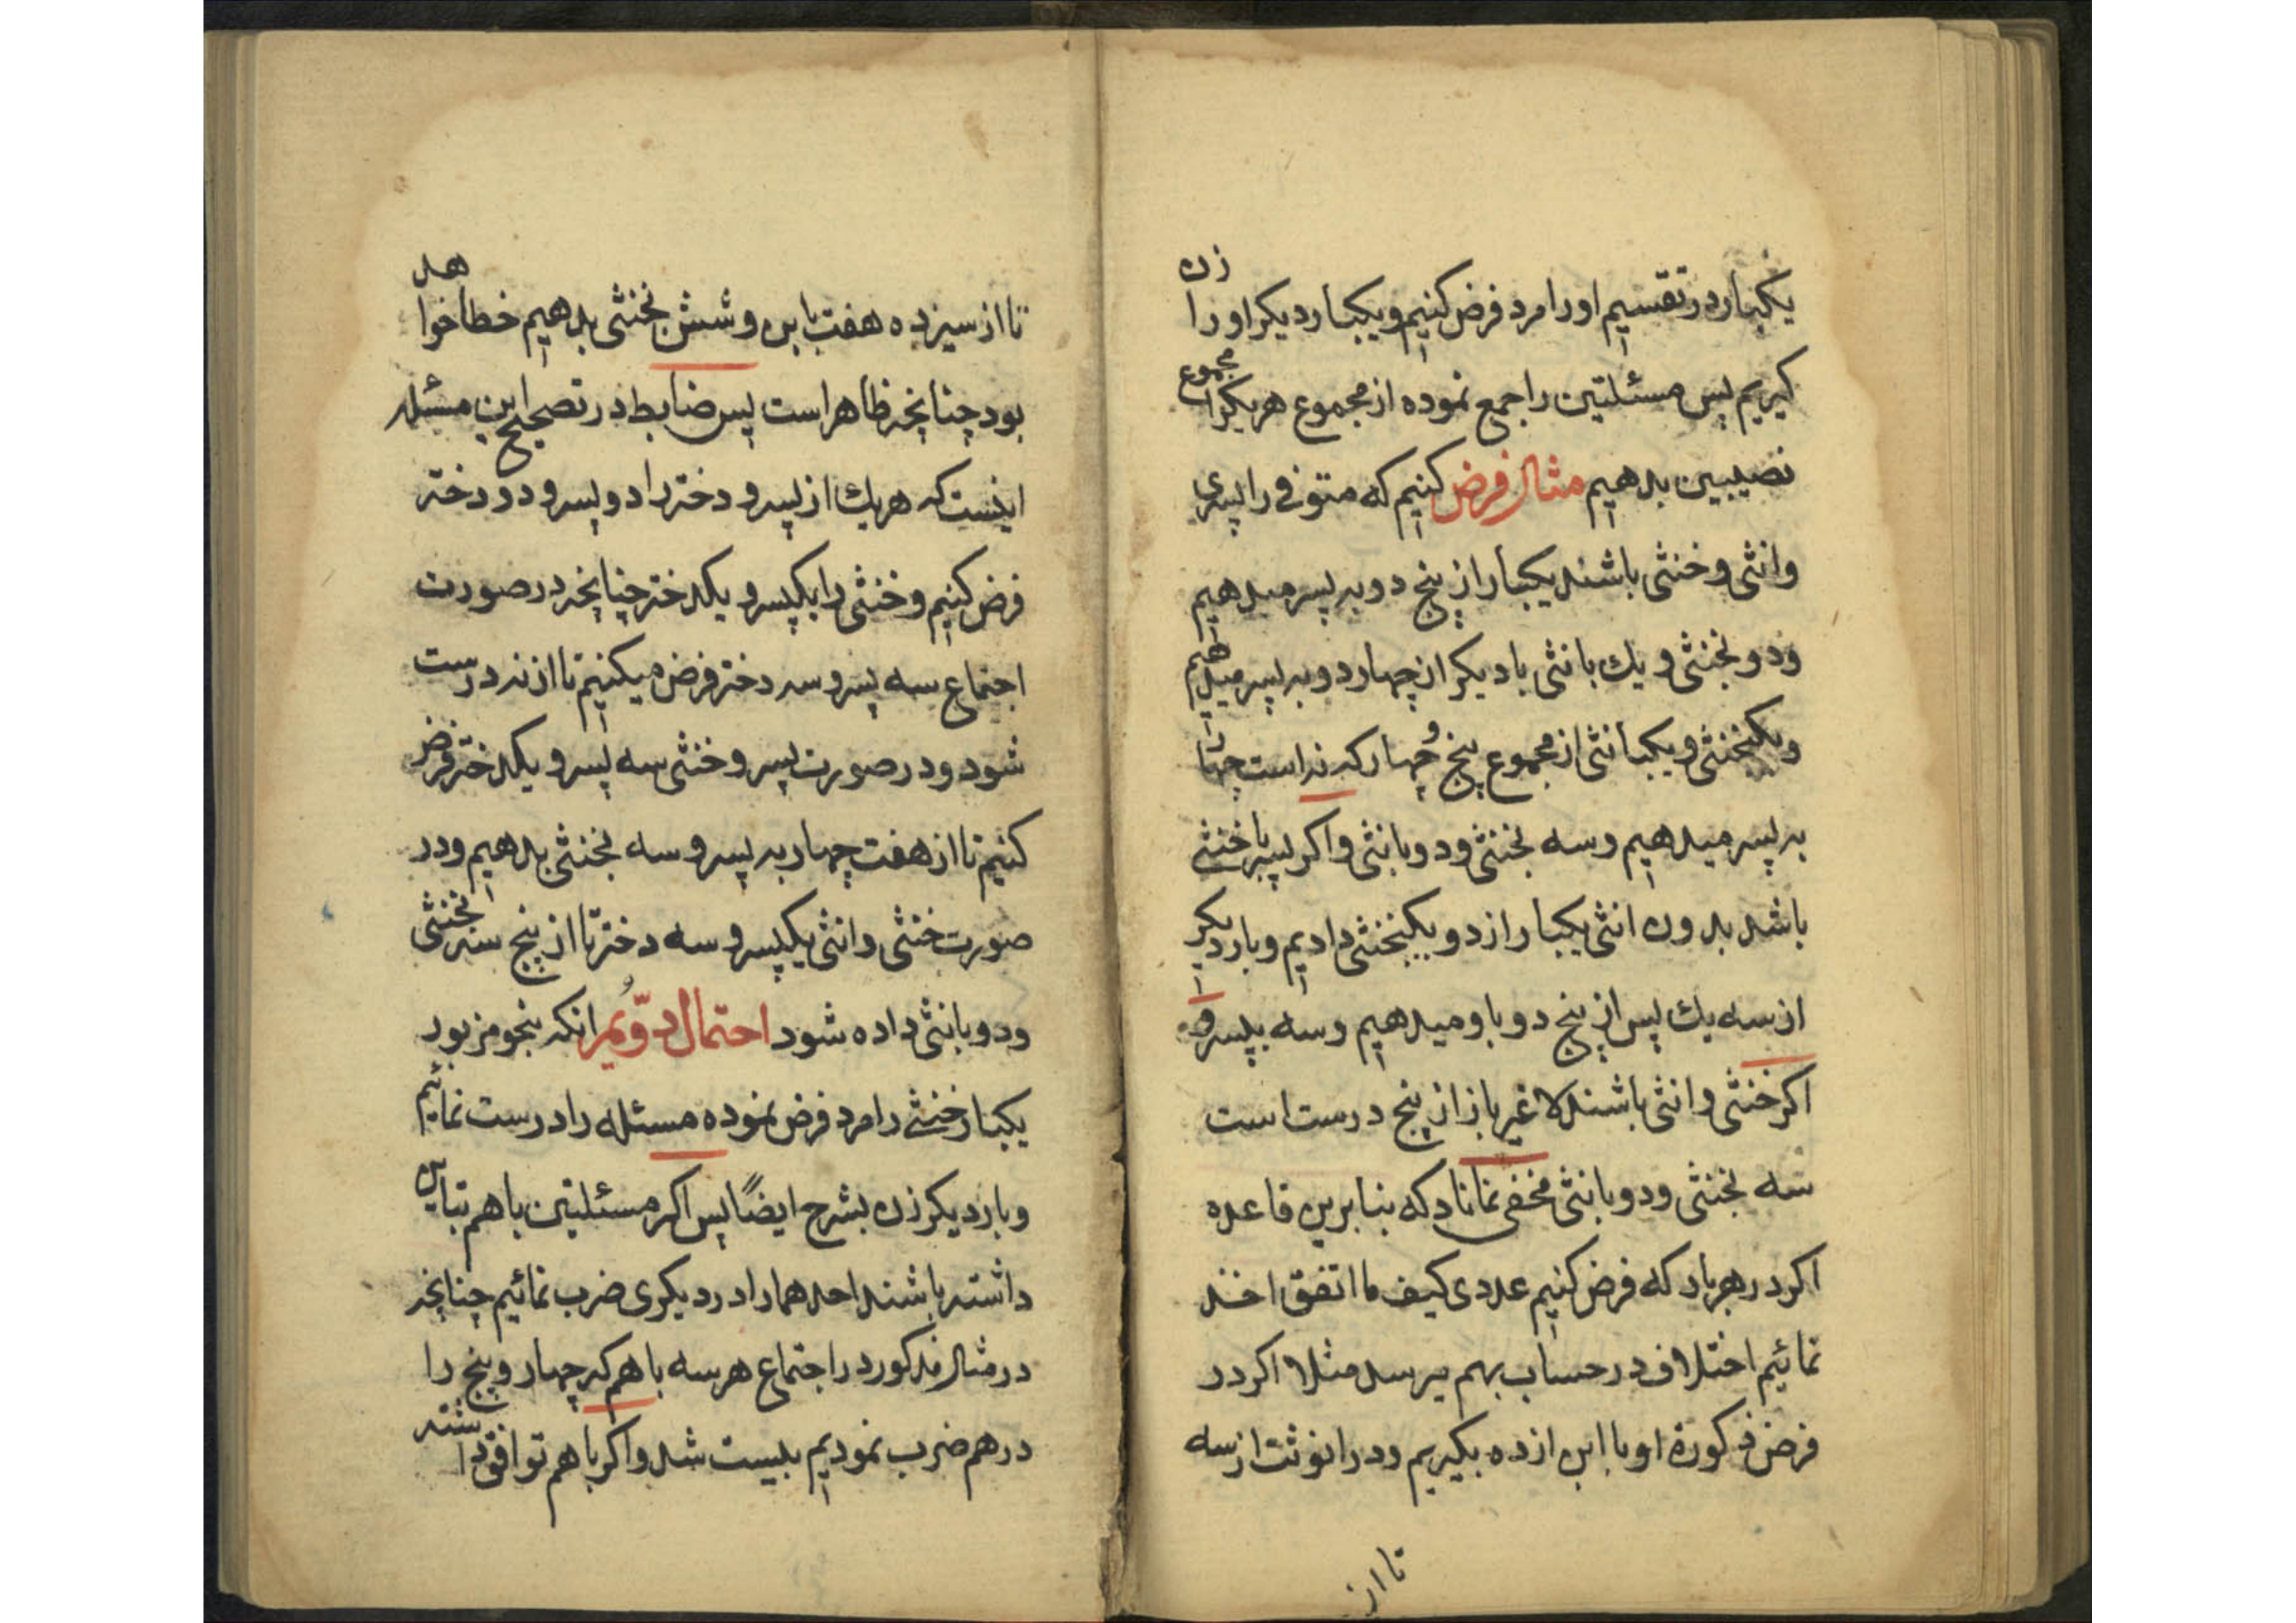 یکبار در تقسیم او را مرد فرض کنیم و یکبار دیکر او را زن
کیریم پس مسئلتین را جمع نموده از مجموع هر یکرا مجموع
نصیبین بدهیم مثال فرض کنیم که متوفی را پسری
وانثی و خنثی باشند یکبار از پنج دو به پسر میدهیم
ودو بخنثی و یك بانثی بار دیکر از چهار دو به پسر میدهیم
ویکبخنثی و یکبانثی از مجموع پنج و چهار که نه است چهار
به پسر میدهیم وسه بخنثی ودو بانثی واکر پسر با خنثی
باشد بدون انثی یکبار از دو یکبخنثی دادیم وبار دیکر
از سه یك پس از پنج دو باو میدهیم وسه بپسر و
اکر خنثی وانثی باشند لاغیر باز از پنج درست است
سه بخنثی ودو بانثی مخفی نماناد که بنابرین قاعده
اکر در هر بار که فرض کنیم عددی کیف ما اتفق اخذ
نمائیم اختلاف در حساب بهم میرسد مثلا اکر در
فرض ذکورة او با ابن از ده بکیریم ودر انوثت از سه
تا از
تا از سیزده هفت بابن وشش بخنثی بدهیم خطا خواهد
بود چنانچه ظاهر است پس ضابط در تصحیح این مسئله
اینست که هر یك از پسر و دختر را دو پسر و دو دختر
فرض کنیم و خنثی را یکپسر و یکدختر چنانچه در صورت
اجتماع سه پسر و سه دختر فرض میکنیم تا از نه درست
شود ودر صورت پسر و خنثی سه پسر و یکدختر فرض
کنیم تا از هفت چهار به پسر و سه بخنثی بدهیم ودر
صورت خنثی وانثی یکپسر و سه دختر تا از پنج سه بخنثی
ودو بانثی داده شود احتمال دویم انکه بنحو مزبور
یکبار خنثی را مرد فرض نموده مسئله را درست نمائیم
وبار دیکر زن بشرح ایضًا پس اکر مسئلتین با هم تباین
داشته باشند احدهما را در دیکری ضرب نمائیم چنانچه
در مثال مذکور در اجتماع هر سه با هم که چهار و پنج را
در هم ضرب نمودیم بیست شد واکر با هم توافق داشته